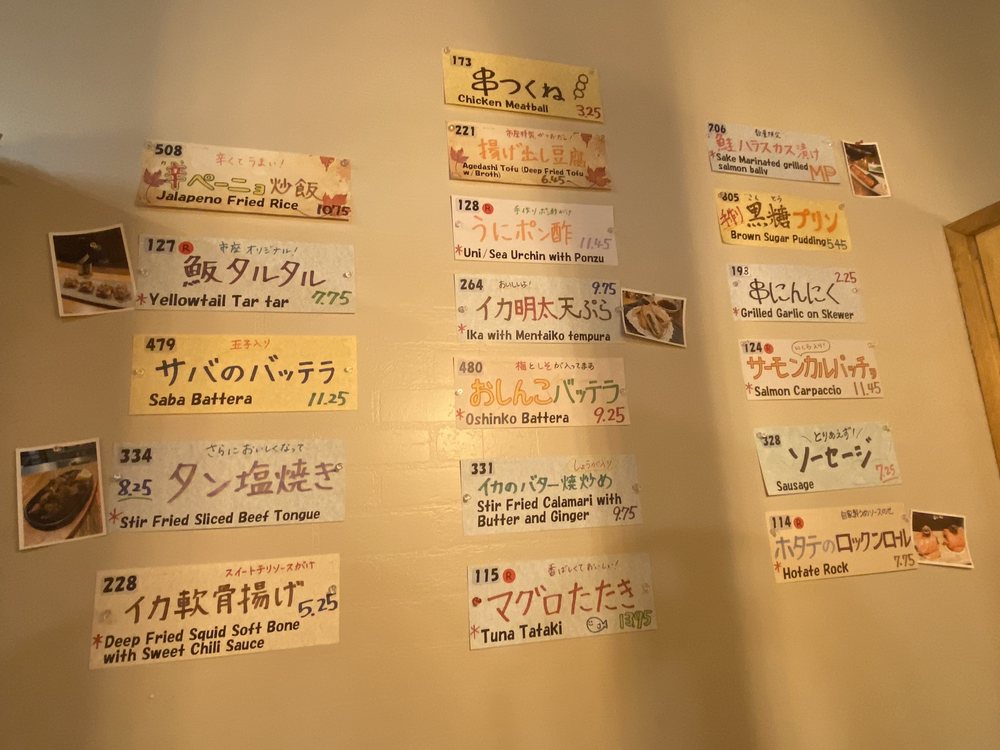 508
辛くてうまい!
辛ペーニョ炒飯
Jalapeno Fried Rice 10.75
127 R 市座オリジナル!
鰤タルタル
*Yellowtail Tar tar 7.75
479 玉子入り
サバのバッテラ
Saba Battera 11.25
334 さらにおいしくなって
8.25 タン塩焼き
*Stir Fried Sliced Beef Tongue
228 スイートチリソースがけ
イカ軟骨揚げ 5.25
*Deep Fried Squid Soft Bone
with Sweet Chili Sauce
173
串つくね
Chicken Meatball 3.25
221 市座特製 かつおだし!
揚げ出し豆腐
Agedashi Tofu (Deep Fried Tofu
w/Broth) 6.45
128 R 手作りポン酢がけ
うにポン酢 11.45
*Uni/Sea Urchin with Ponzu
264 おいしいよ! 9.75
イカ明太天ぷら
*Ika with Mentaiko tempura
480 梅としそが入ってます
おしんこバッテラ
*Oshinko Battera 9.25
331 しょうが入り
イカのバター焼炒め
Stir Fried Calamari with
Butter and Ginger 9.75
115 R 香ばしくておいしい!
マグロたたき
*Tuna Tataki 13.95
706 数量限定
鮭ハラスカス漬け
*Sake Marinated grilled
salmon bally MP
805 こくとう
黒糖プリン
Brown Sugar Pudding 5.45
193 2.25
串にんにく
*Grilled Garlic on Skewer
124 R いくら入り!
サーモンカルパッチョ
*Salmon Carpaccio 11.45
328 とりあえず!
ソーセージ
Sausage 7.25
114 R 自家製うめソースのせ
ホタテのロックンロール
*Hotate Rock 7.75